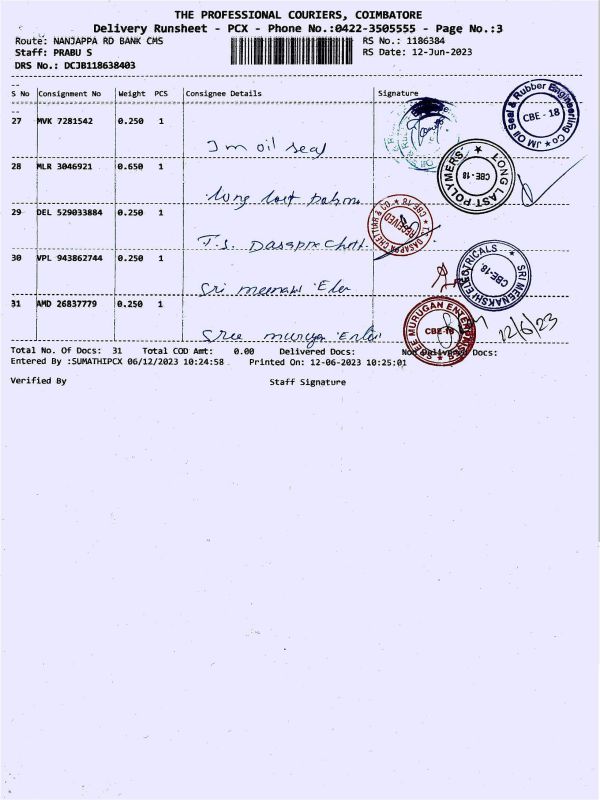 THE PROFESSIONAL COURIERS, COIMBATORE
Delivery Runsheet - PCX - Phone No.:0422-3505555 - Page No.:3
Route: NANJAPPA RD BANK CMS
RS No.: 1186384
Staff: PRABU S
RS Date: 12-Jun-2023
DRS No.: DCJB118638403
S No Consignment No Weight PCS Consignee Details Signature
27 MVK 7281542 0.250 1
Jm oil seal
JM Oil Seal & Rubber Engineering Co ★
CBE - 18
28 MLR 3046921 0.650 1
long last
LONG LAST POLYMERS ★
CBE - 18
29 DEL 529033884 0.250 1
T.S. Dasappa Chett
T.S. DASAPPA CHETTIAR & CO. CBE-18 ★
RECEIVED
30 VPL 943862744 0.250 1
Sri meenakshi Ele
SRI MEENAKSHI ELECTRICALS ★
CBE-18.
31 AMD 26837779 0.250 1
Sree muruga
SREE MURUGAN ENTERPRISES ★
CBE-18
12/6/23
Total No. Of Docs: 31 Total COD Amt: 0.00 Delivered Docs: Non Delivered Docs:
Entered By :SUMATHIPCX 06/12/2023 10:24:58 Printed On: 12-06-2023 10:25:01
Verified By Staff Signature